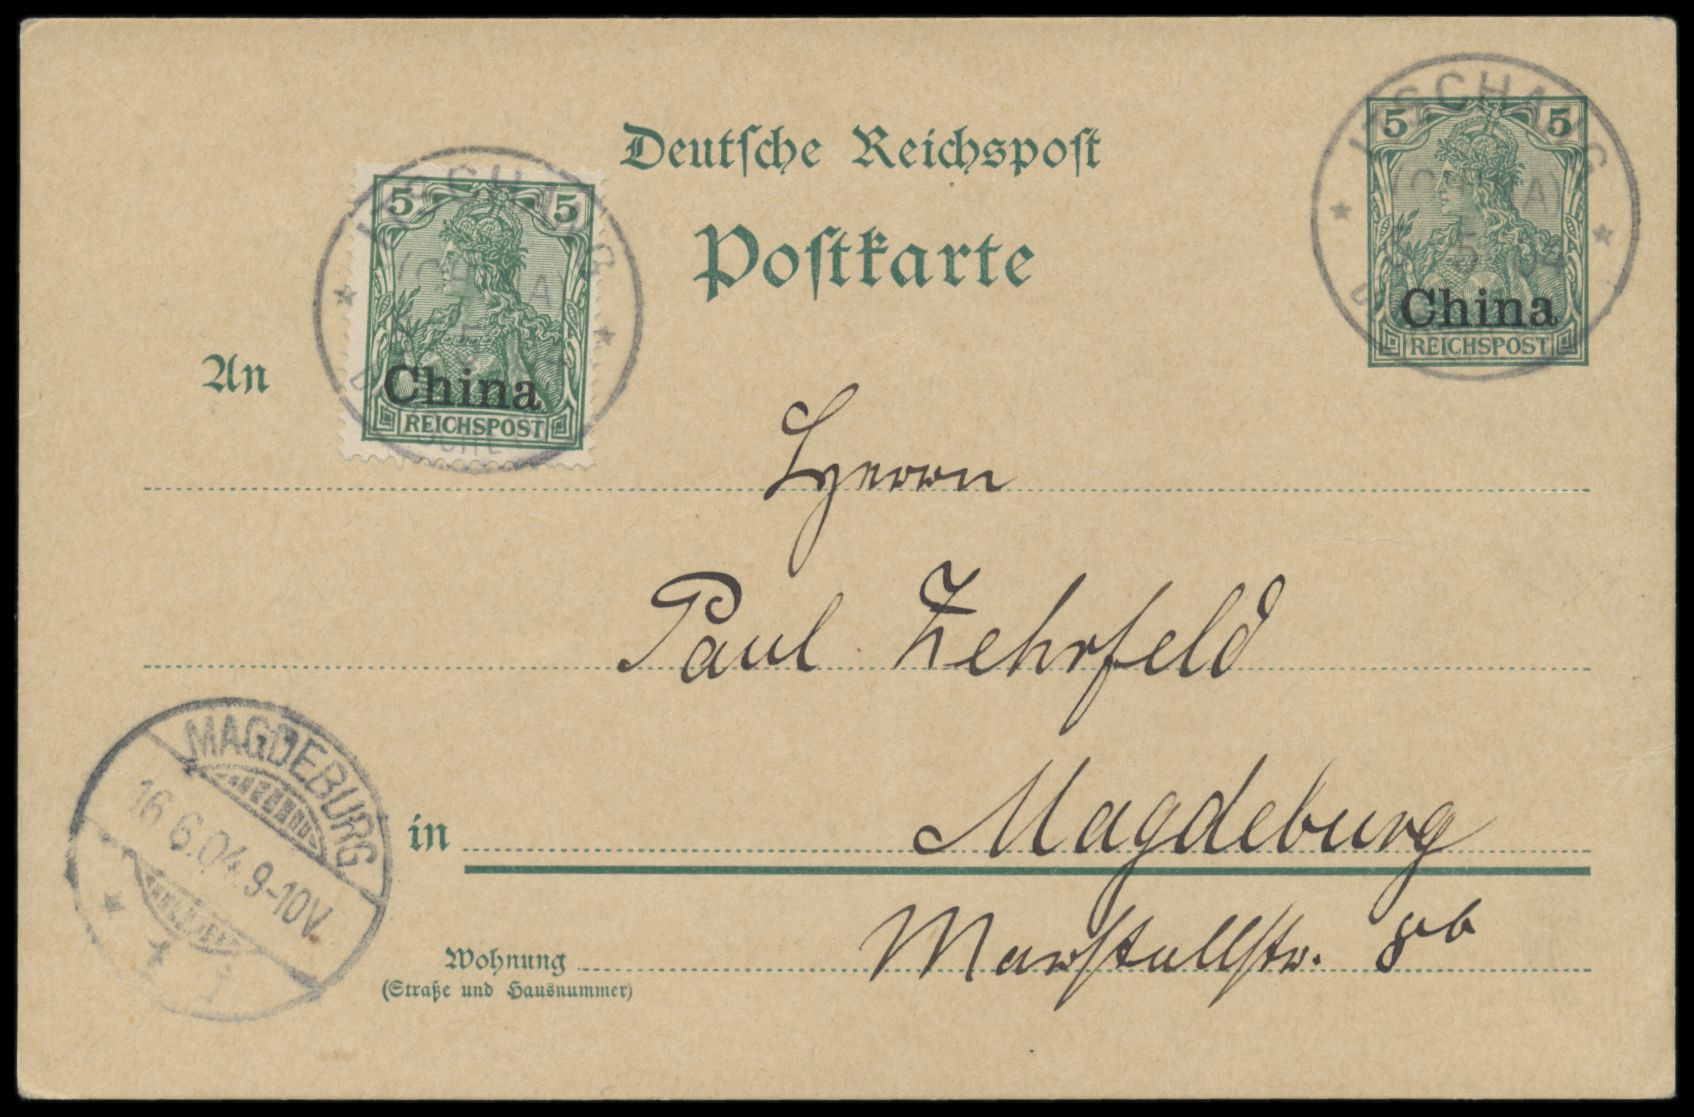 Deutsche Reichspost
Postkarte
5 5
China
REICHSPOST
5 5
China
REICHSPOST
ITSCHANG
(CHINA)
An
Herrn
Paul Zehrfeld
in Magdeburg
Marstallstr. 8b
Wohnung
(Straße und Hausnummer)
MAGDEBURG
16.6.04.9-10V.